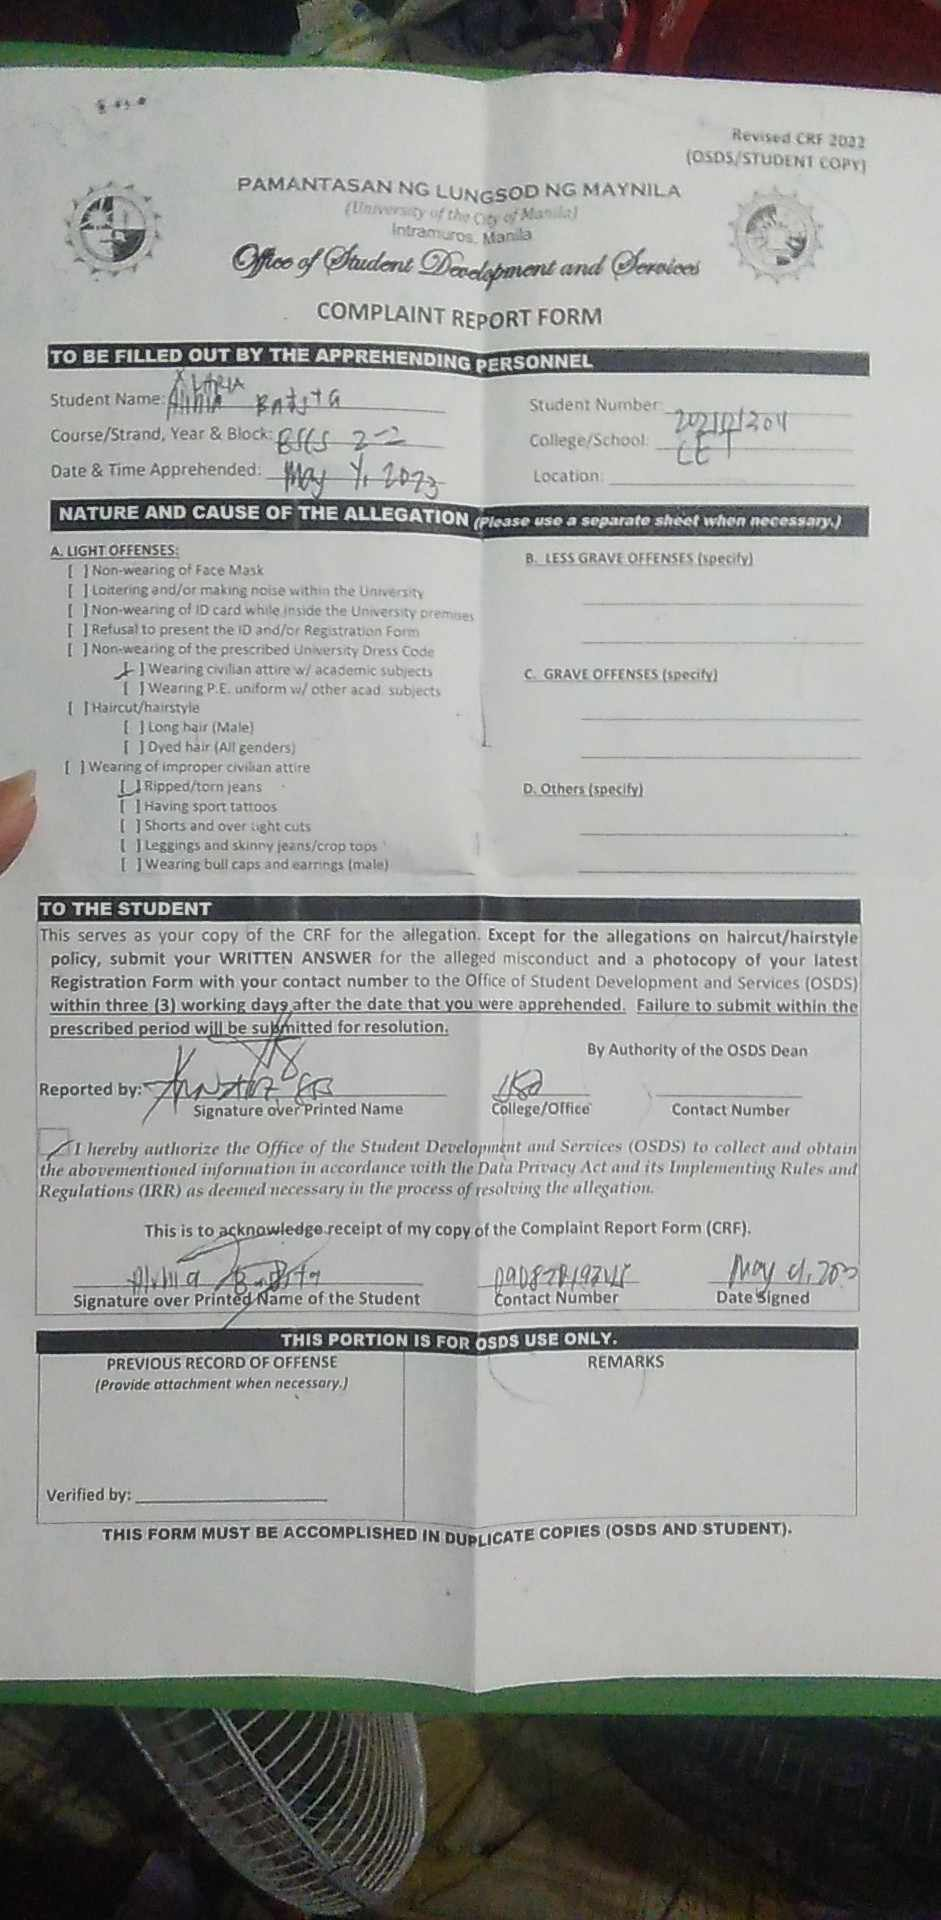 Revised CRF 2022
(OSDS/STUDENT COPY)
PAMANTASAN NG LUNGSOD NG MAYNILA
(University of the City of Manila)
Intramuros, Manila
Office of Student Development and Services
COMPLAINT REPORT FORM
TO BE FILLED OUT BY THE APPREHENDING PERSONNEL
Student Name:
Student Number:
Course/Strand, Year & Block: BSCS 2-2
College/School: CET
Date & Time Apprehended: May 4, 2023
Location:
NATURE AND CAUSE OF THE ALLEGATION (Please use a separate sheet when necessary.)
A. LIGHT OFFENSES:
[ ] Non-wearing of Face Mask
[ ] Loitering and/or making noise within the University
[ ] Non-wearing of ID card while inside the University premises
[ ] Refusal to present the ID and/or Registration Form
[ ] Non-wearing of the prescribed University Dress Code
[ ] Wearing civilian attire w/ academic subjects
[ ] Wearing P.E. uniform w/ other acad. subjects
[ ] Haircut/hairstyle
[ ] Long hair (Male)
[ ] Dyed hair (All genders)
[ ] Wearing of improper civilian attire
[ ] Ripped/torn jeans
[ ] Having sport tattoos
[ ] Shorts and over tight cuts
[ ] Leggings and skinny jeans/crop tops
[ ] Wearing bull caps and earrings (male)
B. LESS GRAVE OFFENSES (specify)
C. GRAVE OFFENSES (specify)
D. Others (specify)
TO THE STUDENT
This serves as your copy of the CRF for the allegation. Except for the allegations on haircut/hairstyle
policy, submit your WRITTEN ANSWER for the alleged misconduct and a photocopy of your latest
Registration Form with your contact number to the Office of Student Development and Services (OSDS)
within three (3) working days after the date that you were apprehended. Failure to submit within the
prescribed period will be submitted for resolution.
By Authority of the OSDS Dean
Reported by:
Signature over Printed Name
College/Office
Contact Number
I hereby authorize the Office of the Student Development and Services (OSDS) to collect and obtain
the abovementioned information in accordance with the Data Privacy Act and its Implementing Rules and
Regulations (IRR) as deemed necessary in the process of resolving the allegation.
This is to acknowledge receipt of my copy of the Complaint Report Form (CRF).
May 4,
Signature over Printed Name of the Student
Contact Number
Date Signed
THIS PORTION IS FOR OSDS USE ONLY.
PREVIOUS RECORD OF OFFENSE
(Provide attachment when necessary.)
REMARKS
Verified by:
THIS FORM MUST BE ACCOMPLISHED IN DUPLICATE COPIES (OSDS AND STUDENT).